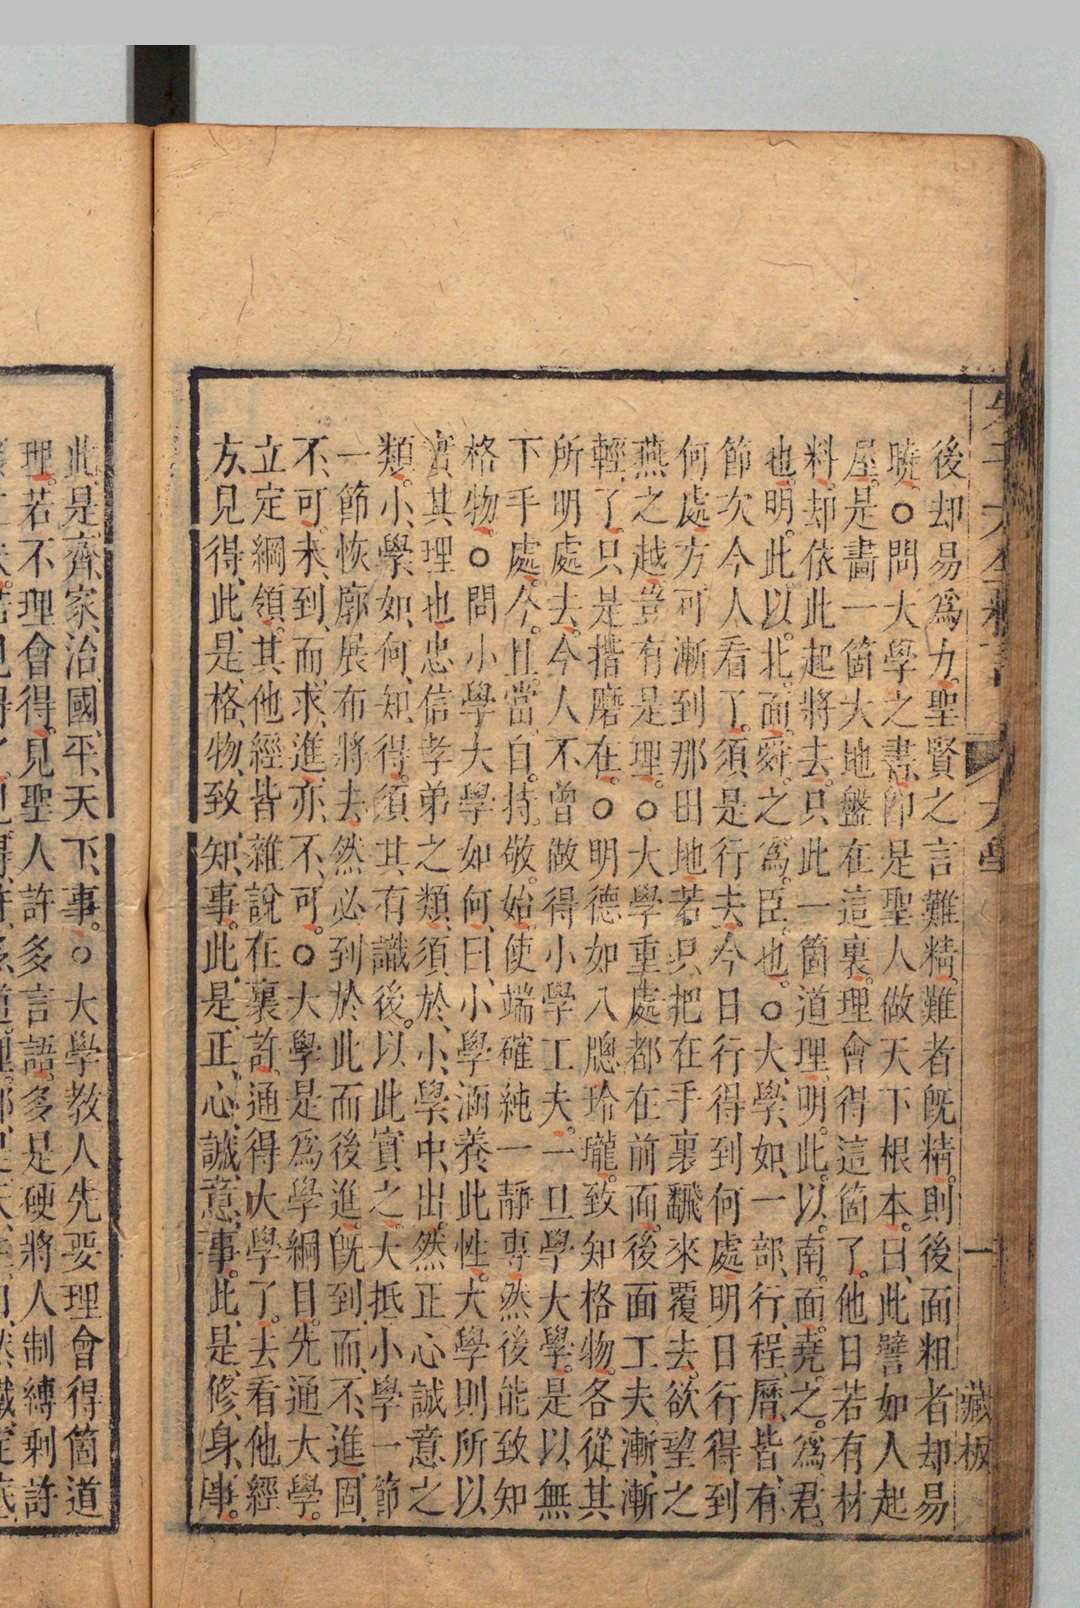 後却易爲力聖賢之言難精難者旣精則後面粗者却易
曉○問大學之書卽是聖人做天下根本曰此譬如人起
屋是畫一箇大地盤在這裏理會得這箇了他日若有材
料却依此起將去只此一箇道理明此以南面堯之爲君
也明此以北面舜之爲臣也○大學如一部行程曆皆有
節次今人看了須是行去今日行得到何處明日行得到
何處方可漸到那田地若只把在手裏飜來覆去欲望之
燕之越豈有是理○大學重處都在前面後面工夫漸漸
輕了只是揩磨在○明德如八牎玲瓏致知格物各從其
所明處去今人不曾做得小學工夫一旦學大學是以無
下手處今且當自持敬始使端確純一靜專然後能致知
格物○問小學大學如何曰小學涵養此性大學則所以
實其理也忠信孝弟之類須於小學中出然正心誠意之
類小學如何知得須其有識後以此實之大抵小學一節
一節恢廓展布將去然必到於此而後進旣到而不進固
不可未到而求進亦不可○大學是爲學綱目先通大學
立定綱領其他經皆雜說在裏許通得大學了去看他經
方見得此是格物致知事此是正心誠意事此是修身事
此是齊家治國平天下事○大學教人先要理會得箇道
理若不理會得見聖人許多言語多是硬將人制縛剩許
藏板